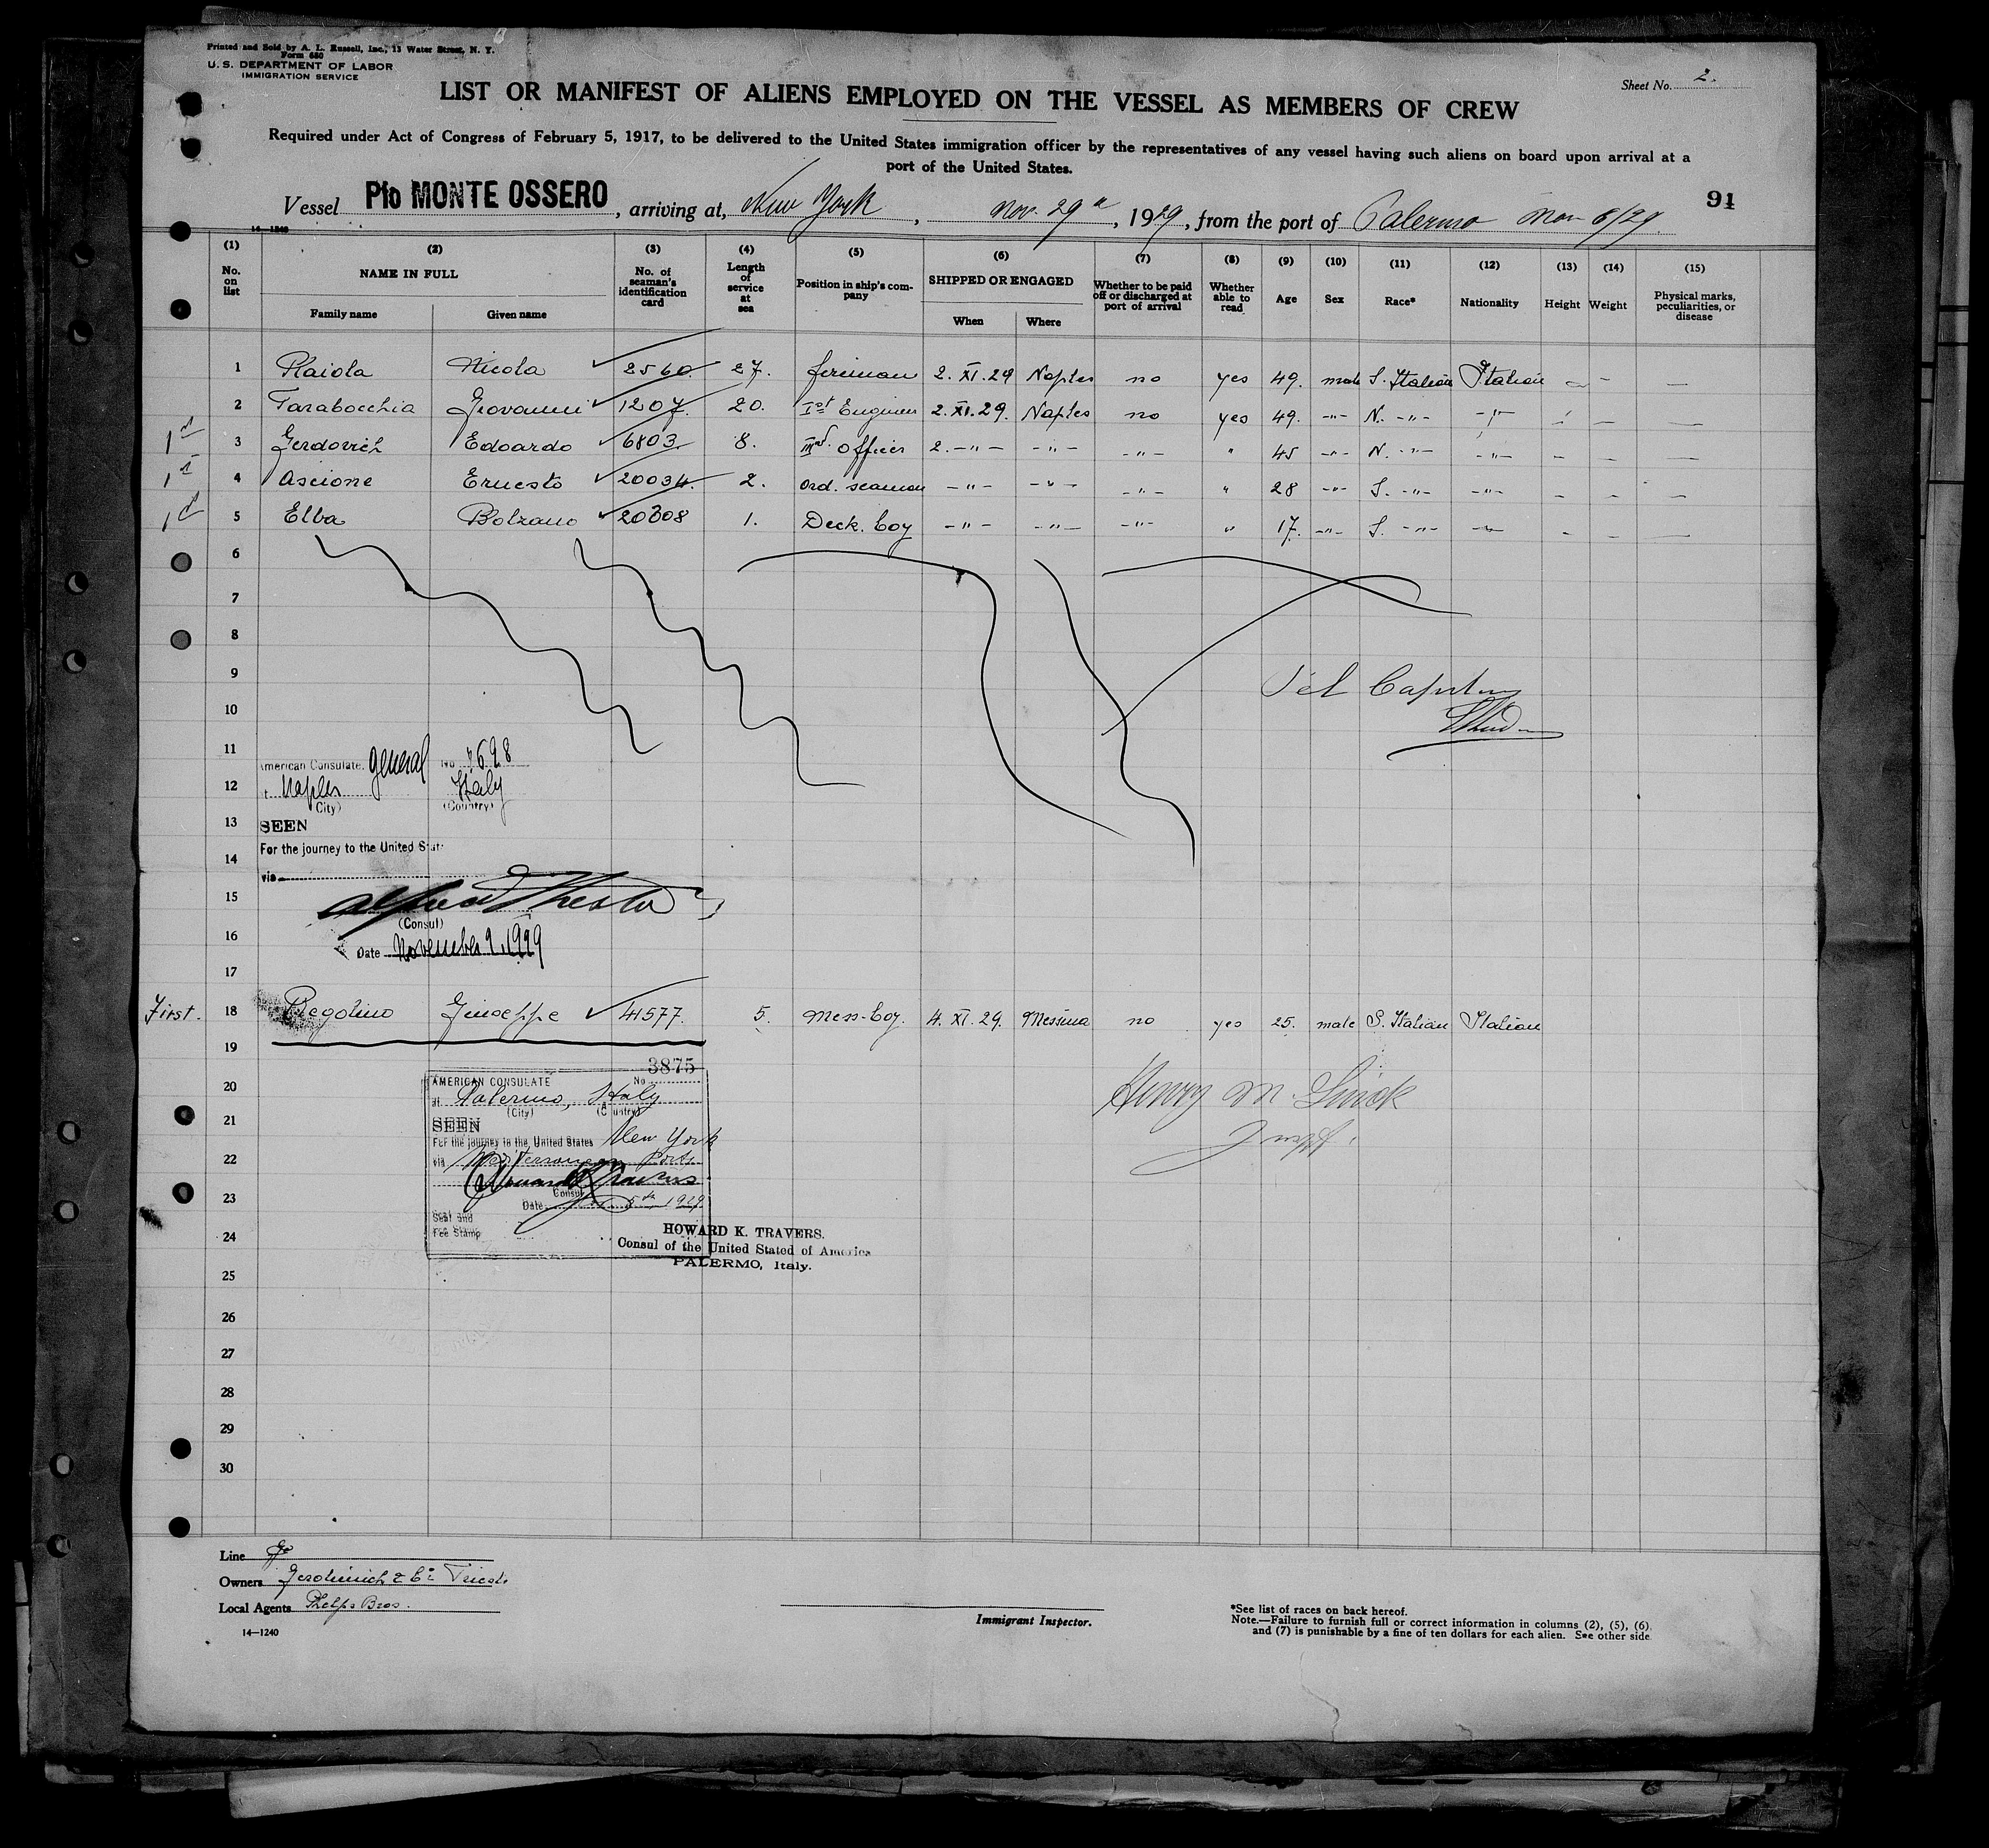 Printed and Sold by A. L. Russell, Inc., 13 Water Street, N. Y.
Form 680
U. S. DEPARTMENT OF LABOR
IMMIGRATION SERVICE
Sheet No. 2.
LIST OR MANIFEST OF ALIENS EMPLOYED ON THE VESSEL AS MEMBERS OF CREW
Required under Act of Congress of February 5, 1917, to be delivered to the United States immigration officer by the representatives of any vessel having such aliens on board upon arrival at a
port of the United States.
91
Vessel Pfo MONTE OSSERO, arriving at, New York, Nov. 29, 1929, from the port of Palermo Nov 6/29.
14-1240
(1) (2) (3) (4) (5) (6) (7) (8) (9) (10) (11) (12) (13) (14) (15)
No. on list NAME IN FULL Family name Given name No. of seaman's identification card Length of service at sea Position in ship's company SHIPPED OR ENGAGED When Where Whether to be paid off or discharged at port of arrival Whether able to read Age Sex Race* Nationality Height Weight Physical marks, peculiarities, or disease
1 Raiola Nicola ✓ 2560. 27. fireman 2. XI. 29 Naples no yes 49. male S. Italian Italian — — —
2 Tarabocchia Giovanni ✓ 1207. 20. Ist Engineer 2. XI. 29. Naples no yes 49. -"- N. -"- -"- — — —
1st 3 Gerdovich Edoardo ✓ 6803 8. IIIrd. officer 2. -"- -"- -"- " 45 -"- N. -"- -"- — — —
1st 4 Ascione Ernesto ✓ 20034. 2. Ord. seaman -"- -"- -"- " 28 -"- S. -"- -"- — — —
1st 5 Elba Bolzano ✓ 20308 1. Deck. boy -"- -"- -"- " 17. -"- S. -"- -"- — — —
6
7
8
9
10
11
American Consulate General No
12
Naples Italy
(City) (Country)
13
SEEN
For the journey to the United Stat
14
via
15
(Consul)
16
Date November 2, 1929
17
First. 18 Regolino Giuseppe ✓ 41577. 5. Mess-boy. 4. XI. 29. Messina no yes 25. male S. Italian Italian
19
3875
AMERICAN CONSULATE No
20
at Palermo, Italy
(City) (Country)
21
SEEN
For the journey to the United States New York
22
via Mediterranean Ports
Consul
23
Date 5th 1929
Seal and
Fee Stamp
Henry M.
Inspt.
24
HOWARD K. TRAVERS.
Consul of the United Stated of America
PALERMO, Italy.
25
26
27
28
29
30
Line
Owners Gerolimich & Co Trieste
Local Agents Phelps Bros.
14—1240
Immigrant Inspector.
*See list of races on back hereof.
Note.—Failure to furnish full or correct information in columns (2), (5), (6),
and (7) is punishable by a fine of ten dollars for each alien. See other side.